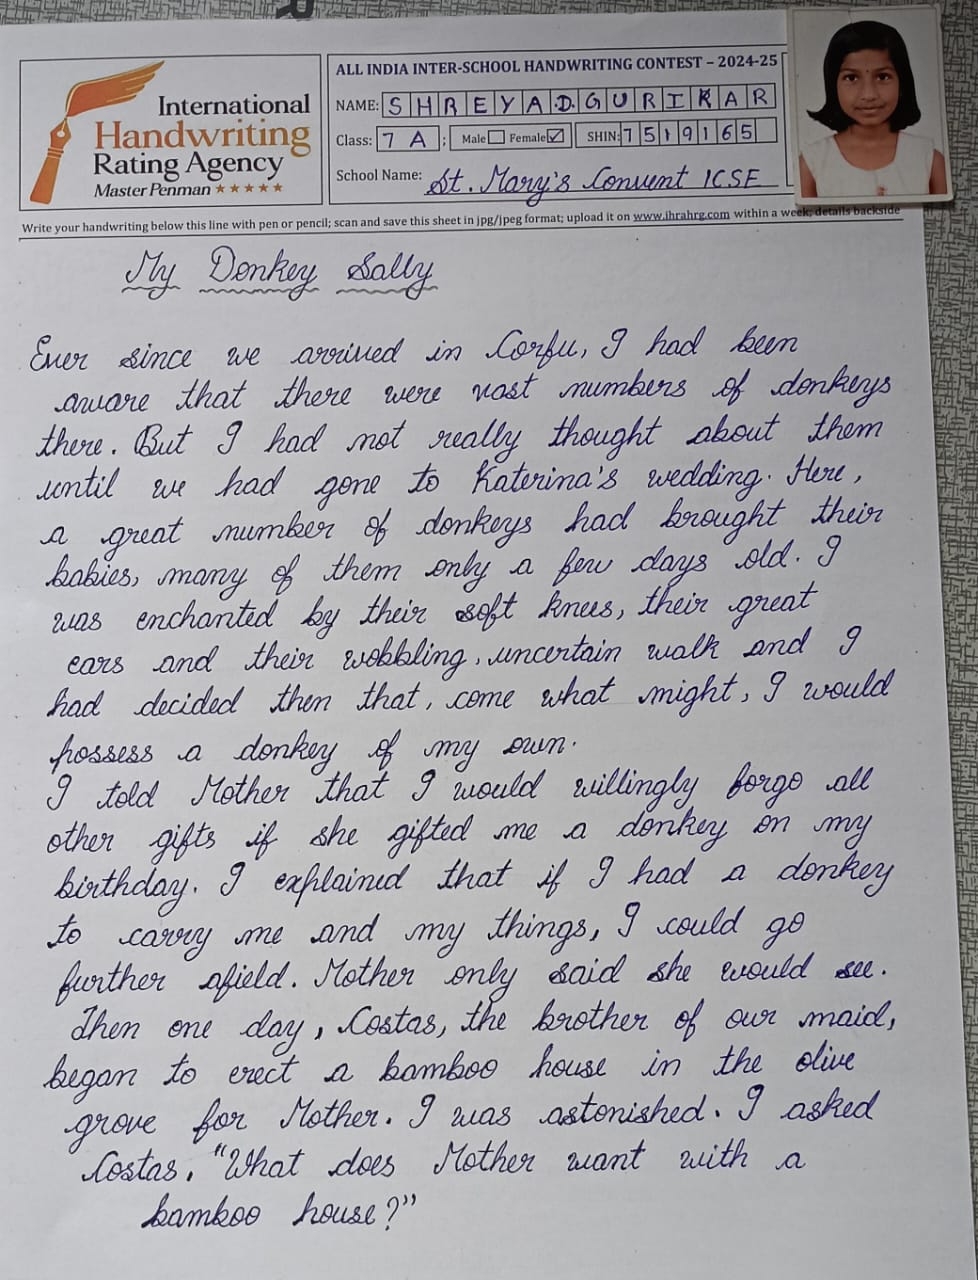 International
Handwriting
Rating Agency
Master Penman ★★★★★
ALL INDIA INTER-SCHOOL HANDWRITING CONTEST – 2024-25
NAME: SHREYA D. GURIKAR
Class: 7 A ; Male Female ☑ SHIN: 7519165
School Name: St. Mary's Convent ICSE
Write your handwriting below this line with pen or pencil; scan and save this sheet in jpg/jpeg format; upload it on www.ihrahrg.com within a week; details backside
My Donkey Sally
Ever since we arrived in Corfu, I had been
aware that there were vast numbers of donkeys
there. But I had not really thought about them
until we had gone to Katerina's wedding. Here,
a great number of donkeys had brought their
babies, many of them only a few days old. I
was enchanted by their soft knees, their great
ears and their wobbling, uncertain walk and I
had decided then that, come what might, I would
possess a donkey of my own.
I told Mother that I would willingly forgo all
other gifts if she gifted me a donkey on my
birthday. I explained that if I had a donkey
to carry me and my things, I could go
further afield. Mother only said she would see.
Then one day, Costas, the brother of our maid,
began to erect a bamboo house in the olive
grove for Mother. I was astonished. I asked
Costas, "What does Mother want with a
bamboo house?"